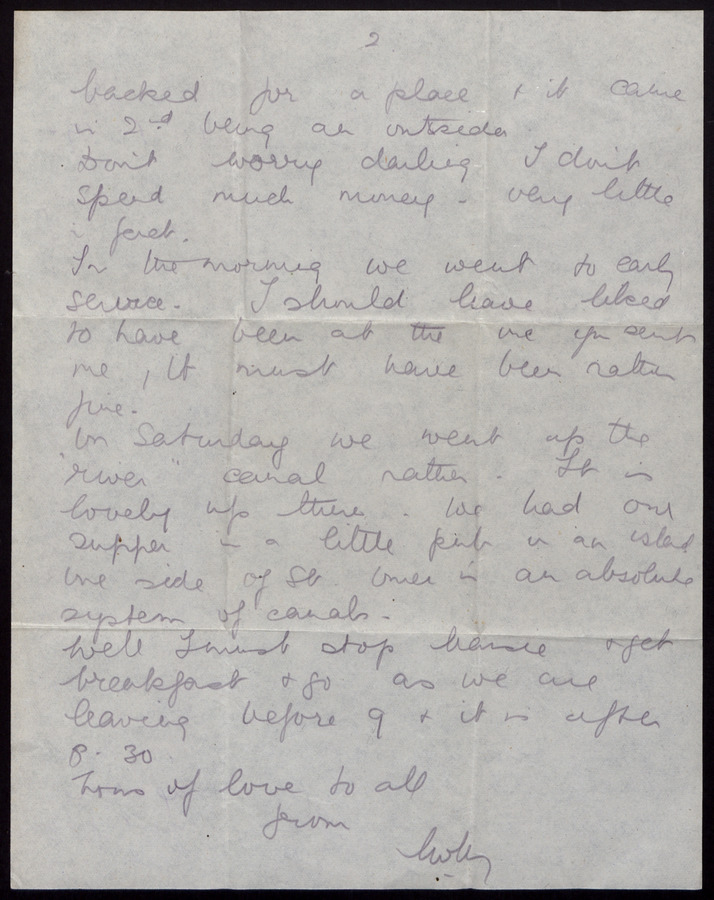 2
backed for a place & it came
in 2nd being an outsider
Don't worry darling I don't
spend much money - very little
in fact.
In the morning we went to early
service. I should have liked
to have been at the one you sent
me, It must have been rather
fine.
On Saturday we went up the
"river" canal rather. It is
lovely up there. We had our
supper in a little pub on an island
one side of St Omer is an absolute
system of canals.
Well I must stop & get
breakfast & go as we are
leaving before 9 & it is after
8.30
Tons of love to all
from